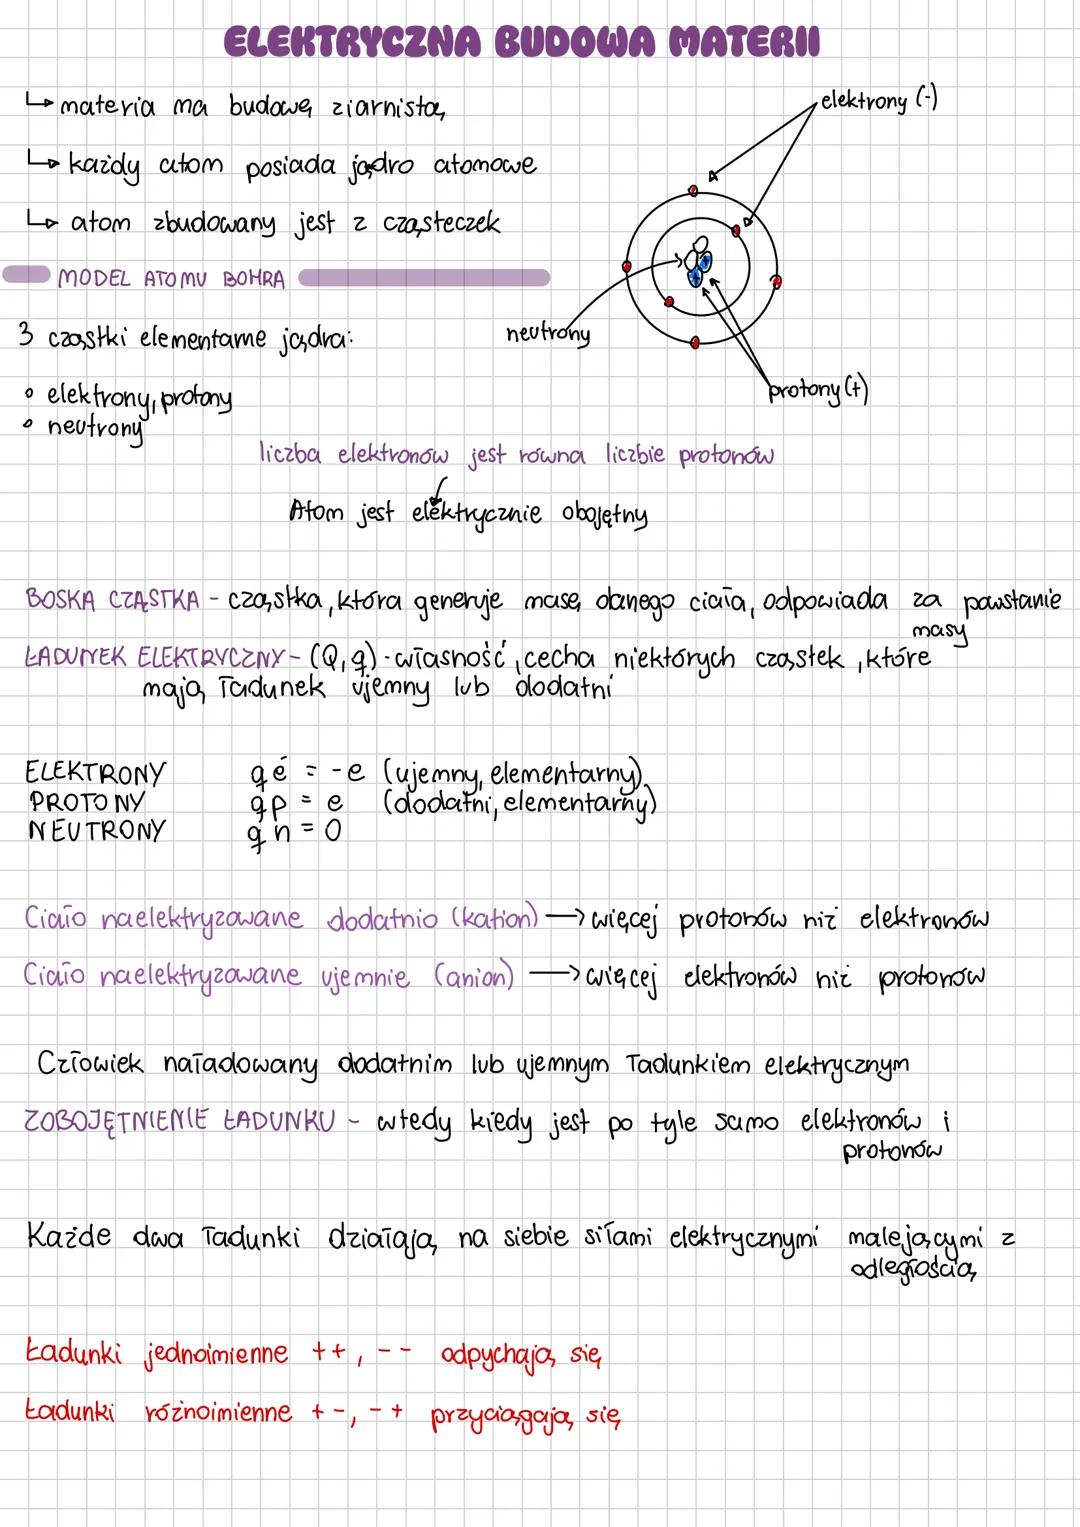 ELEKTRYCZNA BUDOWA MATERII
↳ materia ma budowę ziarnistą
↳ każdy atom posiada jądro atomowe
↳ atom zbudowany jest z cząsteczek
MODEL ATOMU BOHRA
elektrony (-)
neutrony
protony (+)
3 cząstki elementarne jądra:
• elektrony, protony
• neutrony
liczba elektronów jest równa liczbie protonów
Atom jest elektrycznie obojętny
BOSKA CZĄSTKA - cząstka, która generuje masę danego ciała, odpowiada za powstanie
masy
ŁADUNEK ELEKTRYCZNY - (Q, q) - własność, cecha niektórych cząstek, które
mają ładunek ujemny lub dodatni
ELEKTRONY qé = -e (ujemny, elementarny)
PROTONY qp = e (dodatni, elementarny)
NEUTRONY qn = 0
Ciało naelektryzowane dodatnio (kation) → więcej protonów niż elektronów
Ciało naelektryzowane ujemnie (anion) → więcej elektronów niż protonów
Człowiek naładowany dodatnim lub ujemnym ładunkiem elektrycznym
ZOBOJĘTNIENIE ŁADUNKU - wtedy kiedy jest po tyle samo elektronów i
protonów
Każde dwa ładunki działają na siebie siłami elektrycznymi malejącymi z
odległością
Ładunki jednoimienne ++, -- odpychają się
Ładunki różnoimienne +-, -+ przyciągają się